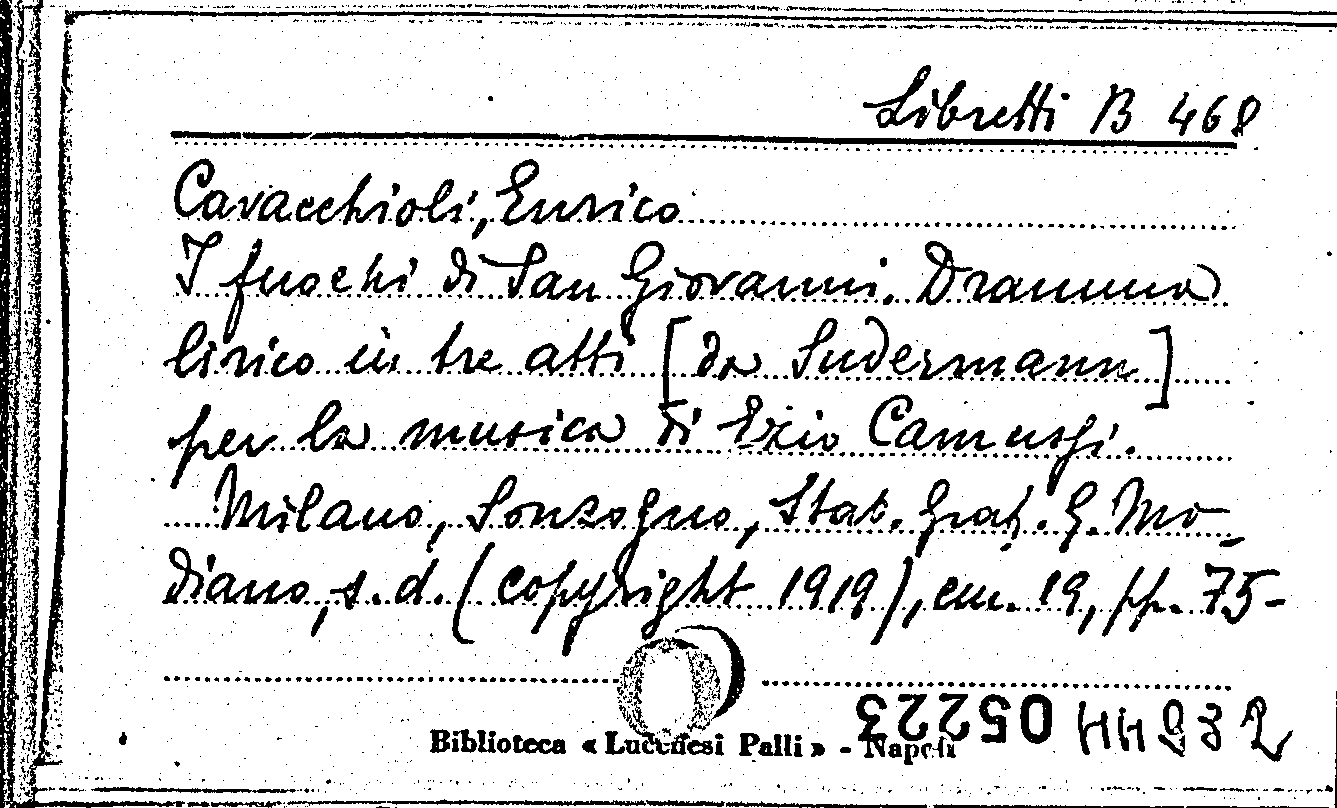 Libretti B 468
Cavacchioli, Enrico
I fuochi di San Giovanni. Dramma
lirico in tre atti [da Sudermann]
per la musica di Ezio Camussi.
Milano, Sonzogno, Stab. Graf. G. Mo-
diano, s. d. (copyright 1919), cm. 19, pp. 75-
05223
Biblioteca « Lucchesi Palli » - Napoli